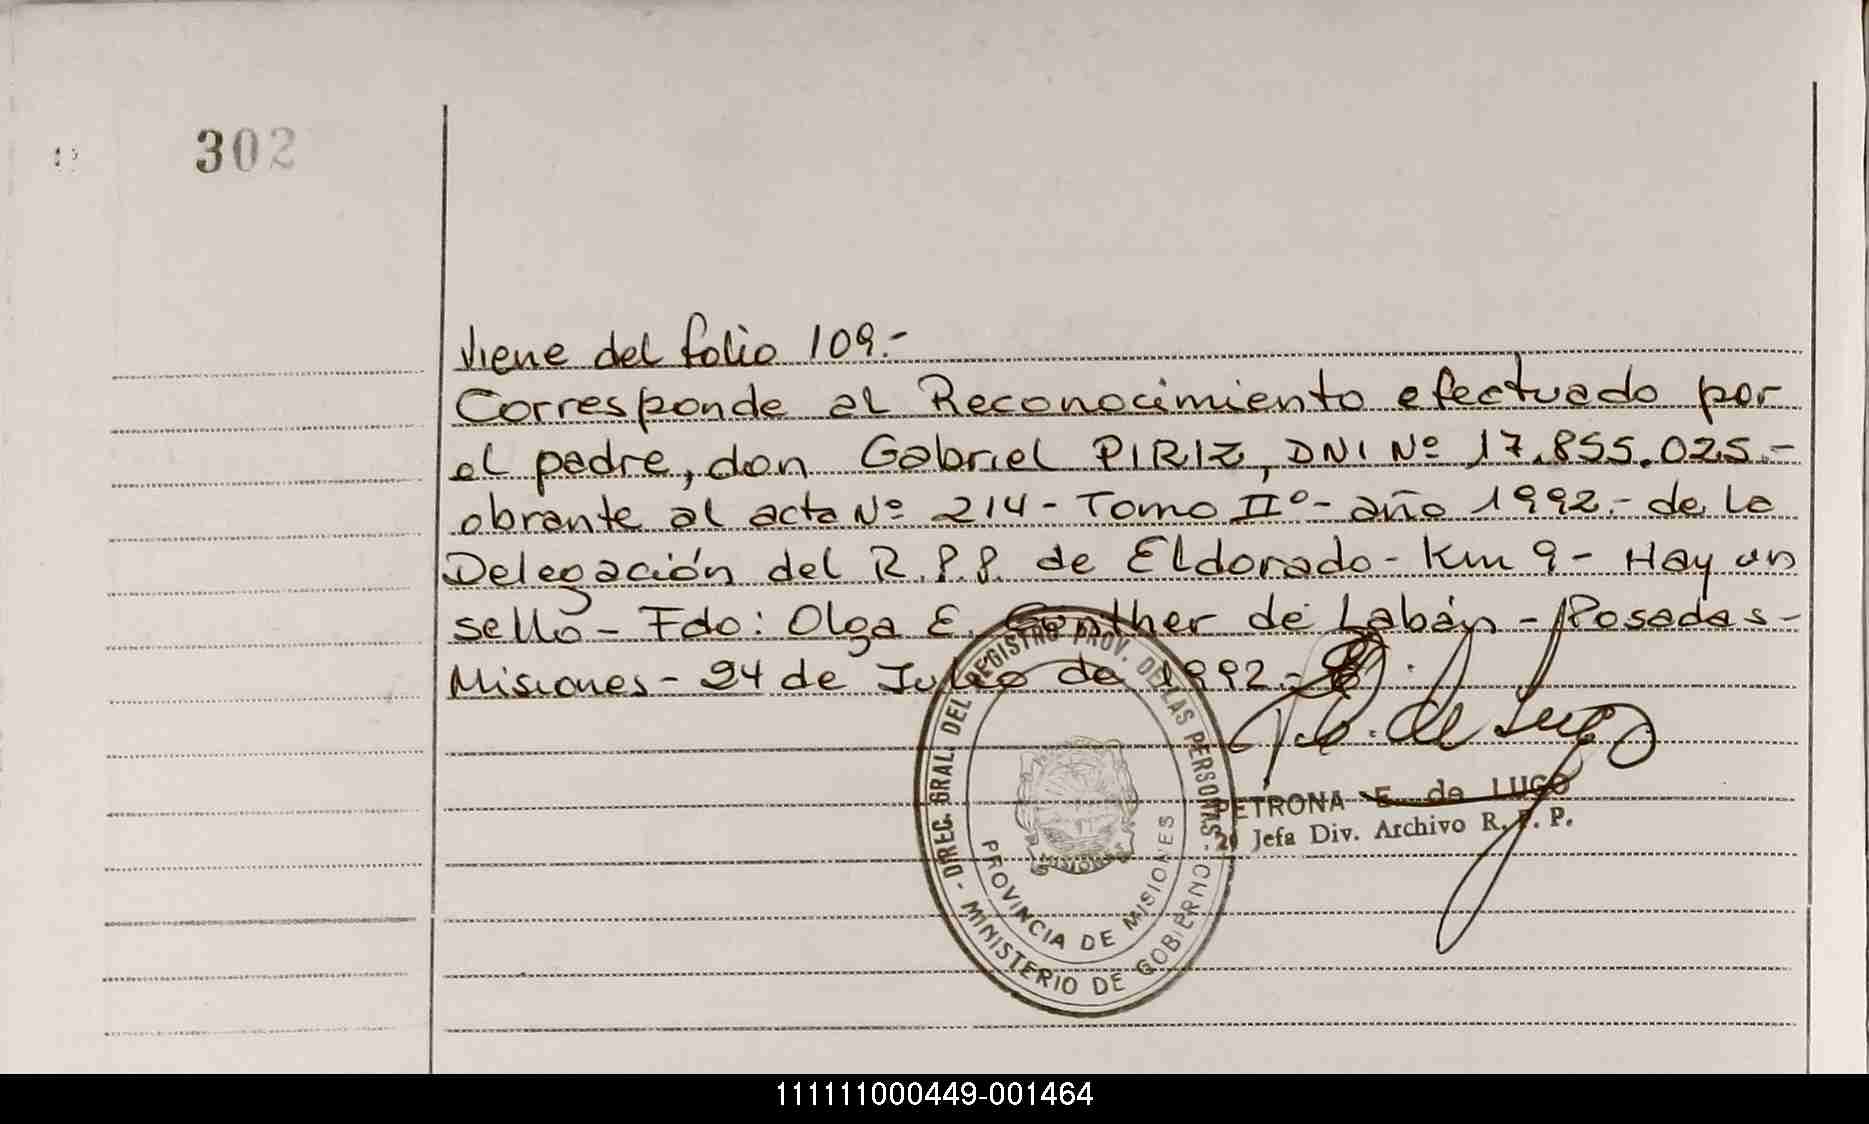 302
Viene del folio 109.-
Corresponde al Reconocimiento efectuado por
el padre, don Gabriel PIRIZ, DNI Nº 17.855.025.-
obrante al acta Nº 214 - Tomo IIº - año 1992.- de la
Delegación del R.P.P. de Eldorado - Km 9 - Hay un
sello - Fdo: Olga E. Gonther de Labán - Posadas -
Misiones - 24 de Julio de 1992.-
P. E. de Lugo
PETRONA E. de LUGO
Jefa Div. Archivo R. P. P.
DIREC. GRAL. DEL REGISTRO PROV. DE LAS PERSONAS - MINISTERIO DE GOBIERNO -
PROVINCIA DE MISIONES
MISIONES
111111000449-001464